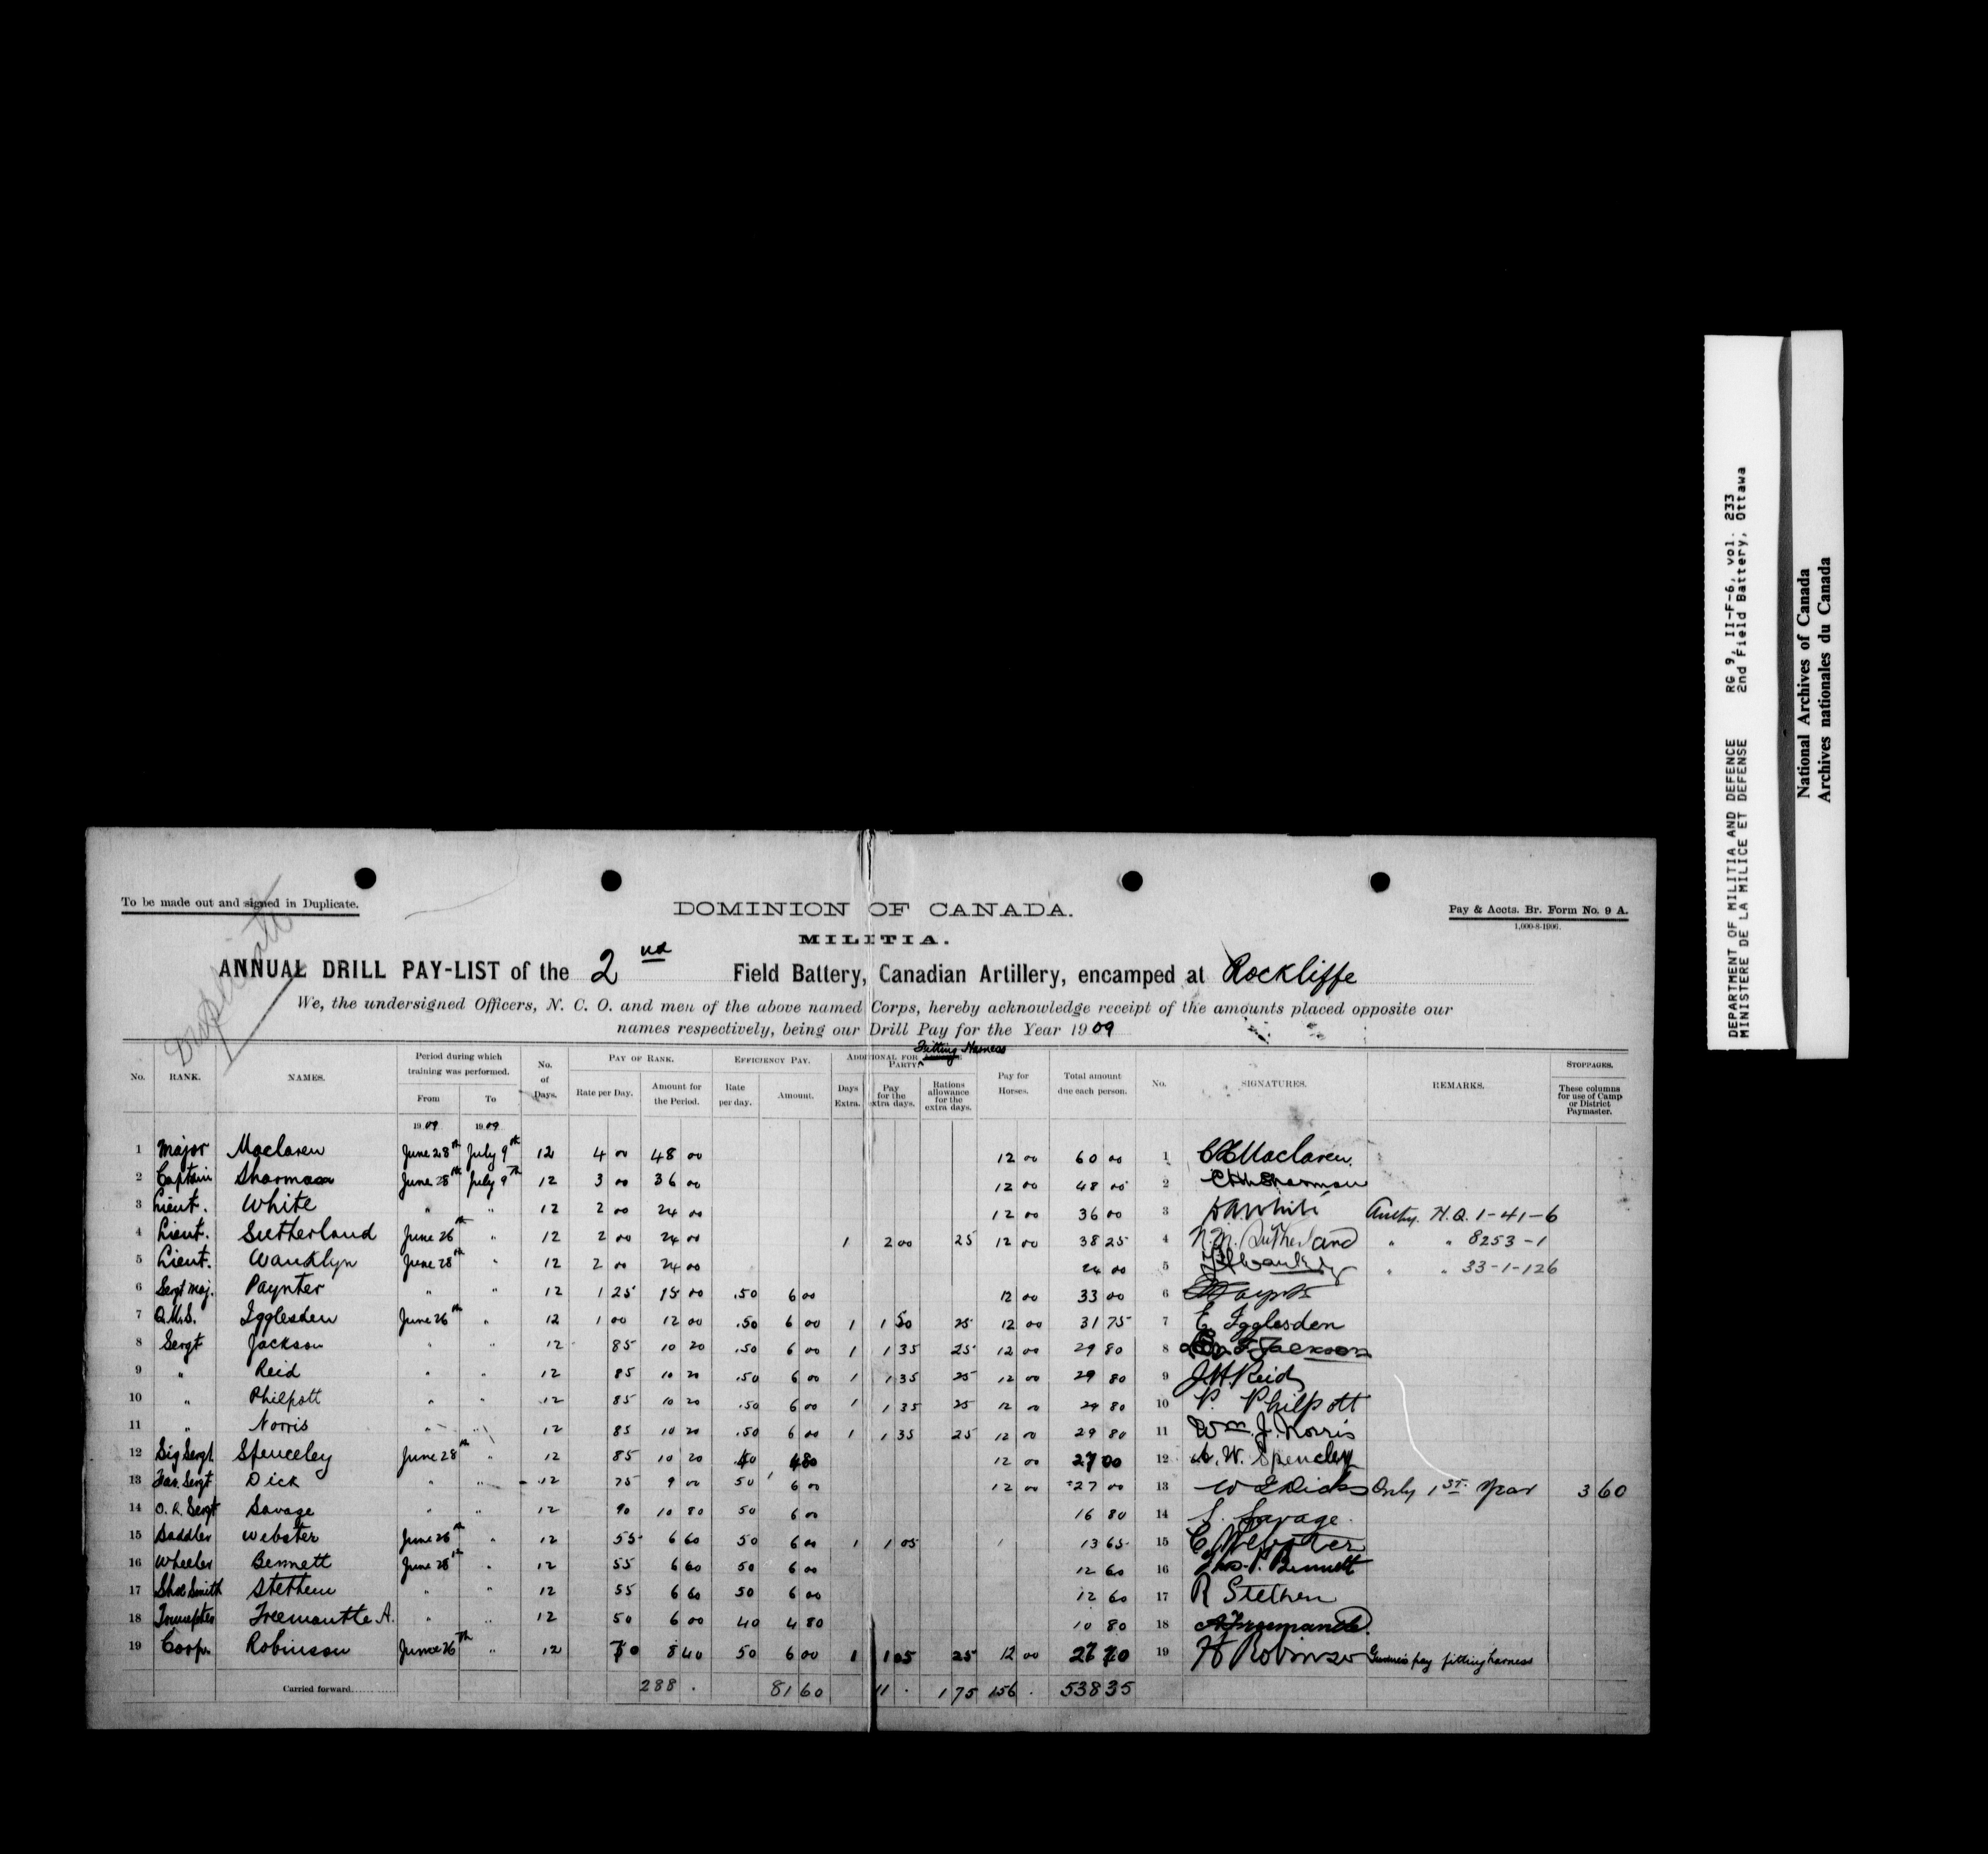 To be made out and signed in Duplicate.
Duplicate
DOMINION OF CANADA.
Pay & Accts. Br. Form No. 9 A.
1,000-8-1906.
MILITIA.
ANNUAL DRILL PAY-LIST of the 2nd Field Battery, Canadian Artillery, encamped at Rockliffe
We, the undersigned Officers, N. C. O. and men of the above named Corps, hereby acknowledge receipt of the amounts placed opposite our
names respectively, being our Drill Pay for the Year 1909
No. RANK. NAMES. Period during which training was performed. From To No. of Days. PAY OF RANK. Rate per Day. Amount for the Period. EFFICIENCY PAY. Rate per day. Amount. ADDITIONAL FOR Fitting Harness PARTY Days Extra. Pay for the extra days. Rations allowance for the extra days. Pay for Horses. Total amount due each person. No. SIGNATURES. REMARKS. STOPPAGES. These columns for use of Camp or District Paymaster.
1909 1909
1 Major Maclaren June 28th July 9th 12 4 00 48 00 12 00 60 00 1 C H Maclaren.
2 Captain Sharman June 28th July 9th 12 3 00 36 00 12 00 48 00 2 CHL Sharman
3 Lieut. White " " 12 2 00 24 00 12 00 36 00 3 DA White Authy. H.Q. 1-41-6
4 Lieut. Sutherland June 26th " 12 2 00 24 00 1 2 00 25 12 00 38 25 4 N.M. Sutherland " " 8253-1
5 Lieut. Wanklyn June 28th " 12 2 00 24 00 24 00 5 " " 33-1-126
6 Sergt Maj. Paynter " " 12 1 25 15 00 .50 6 00 12 00 33 00 6
7 Q.M.S. Igglesden June 26th " 12 1 00 12 00 .50 6 00 1 1 50 25 12 00 31 75 7 E. Igglesden
8 Sergt Jackson " " 12 85 10 20 .50 6 00 1 1 35 25 12 00 29 80 8 F. Jackson
9 " Reid " " 12 85 10 20 .50 6 00 1 1 35 25 12 00 29 80 9 J.H. Reid
10 " Philpott " " 12 85 10 20 .50 6 00 1 1 35 25 12 00 29 80 10 P. Philpott
11 " Norris " " 12 85 10 20 .50 6 00 1 1 35 25 12 00 29 80 11 Wm. J. Norris
12 Sig Sergt. Spenceley June 28th " 12 85 10 20 .40 4 80 12 00 27 00 12 A. W. Spenceley
13 Far. Sergt Dick " " 12 75 9 00 50 6 00 12 00 27 00 13 W Dick Only 1st year 3 60
14 O. R. Sergt Savage " " 12 90 10 80 50 6 00 16 80 14 S. Savage.
15 Saddler Webster June 26th " 12 55 6 60 50 6 00 1 1 05 13 65 15 C Webster
16 Wheeler Bennett June 28th " 12 55 6 60 50 6 00 12 60 16 Thos. P. Bennett
17 Shoe Smith Stethem " " 12 55 6 60 50 6 00 12 60 17 R Stethem
18 Trumpeter Freemantle A. " " 12 50 6 00 40 4 80 10 80 18 A Freemantle.
19 Corp. Robinson June 26th " 12 70 8 40 50 6 00 1 1 05 25 12 00 27 70 19 H Robinson Gunner's pay fitting harness
Carried forward 288 . 81 60 11 . 1 75 156 . 538 35
DEPARTMENT OF MILITIA AND DEFENCE RG 9, II-F-6, vol. 233
MINISTERE DE LA MILICE ET DEFENSE 2nd Field Battery, Ottawa
National Archives of Canada
Archives nationales du Canada